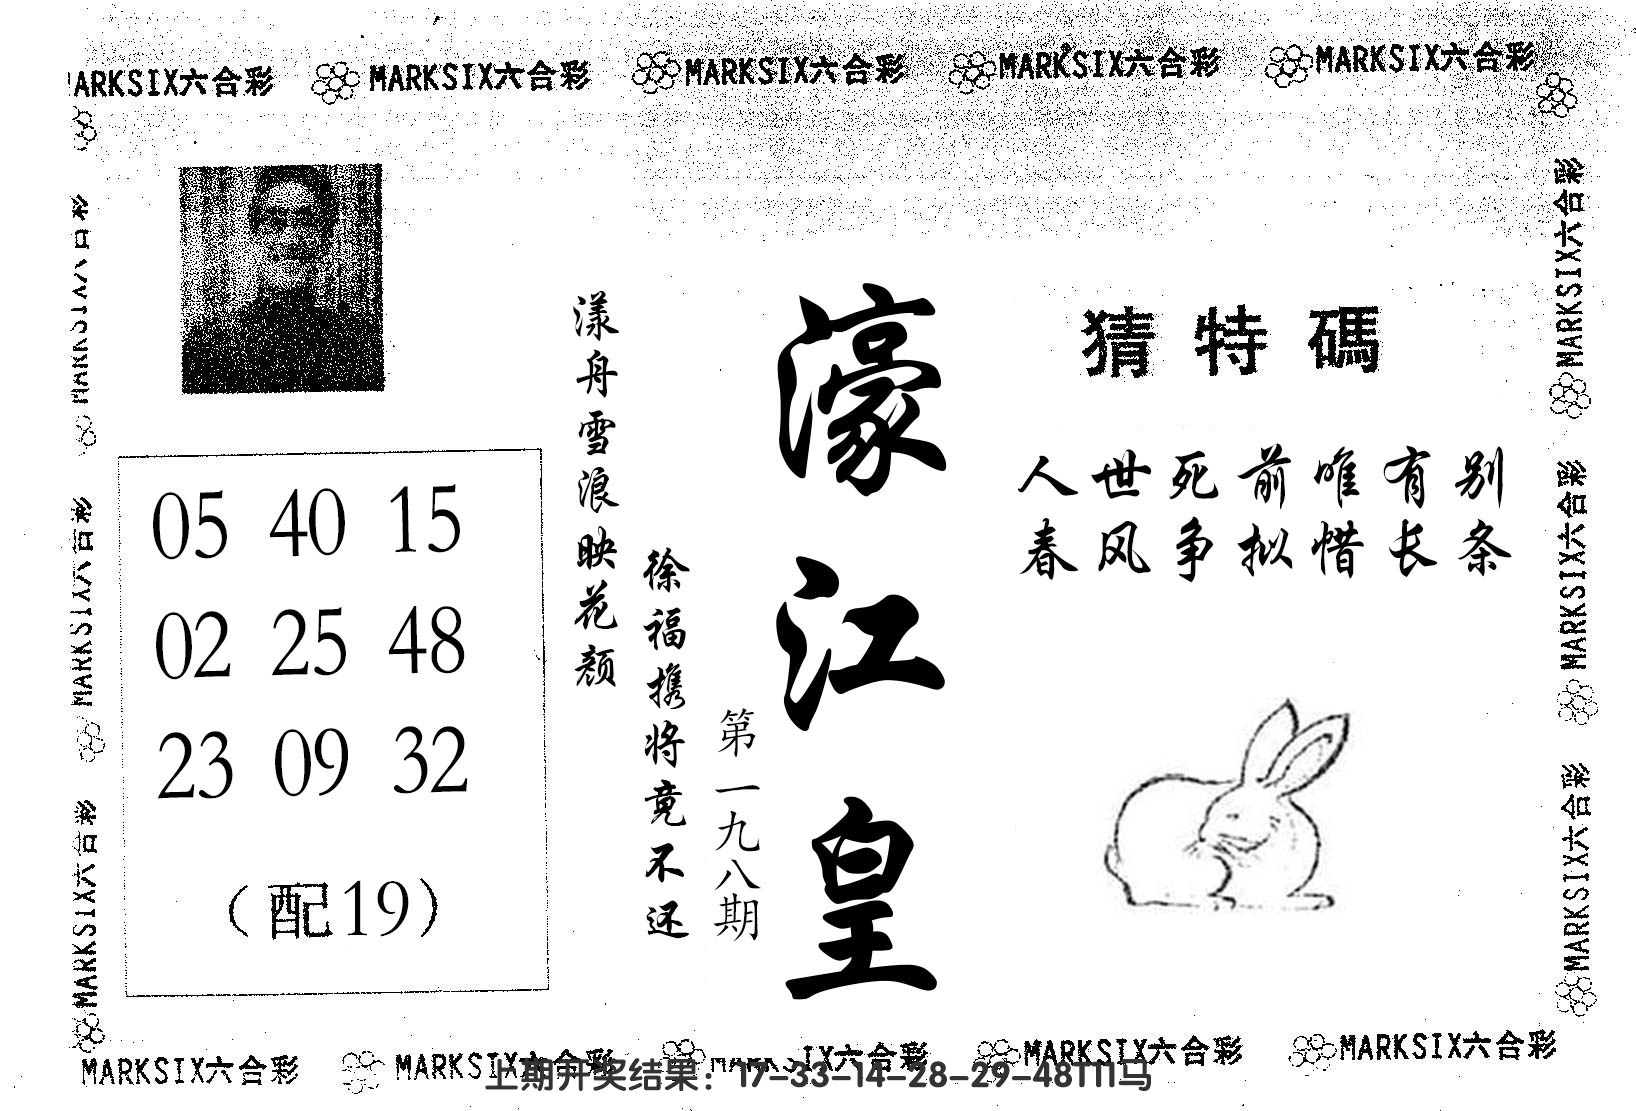 MARKSIX六合彩 MARKSIX六合彩 MARKSIX六合彩 MARKSIX六合彩 MARKSIX六合彩
MARKSIX六合彩
MARKSIX六合彩
MARKSIX六合彩
猜特碼
人世死前唯有别
春风争拟惜长条
濠江皇
第一九八期
漾舟雪浪映花颜
徐福携将竟不还
05 40 15
02 25 48
23 09 32
（配19）
MARKSIX六合彩
MARKSIX六合彩
MARKSIX六合彩
MARKSIX六合彩 MARKSIX六合彩 六合彩 MARKSIX六合彩 MARKSIX六合彩
上期开奖结果：17-33-14-28-29-48T11马